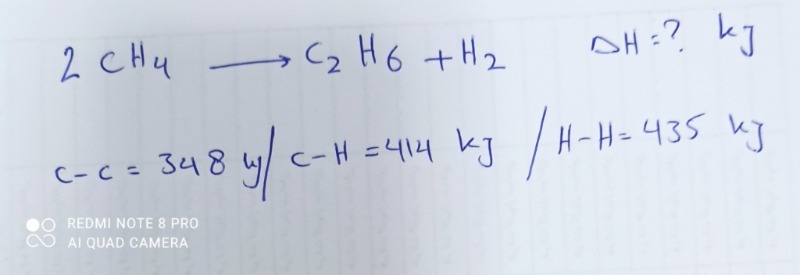 2 CH4 → C2 H6 + H2 ΔH = ? kj
C-C = 348 kj / C-H = 414 kj / H-H = 435 kj
REDMI NOTE 8 PRO
AI QUAD CAMERA